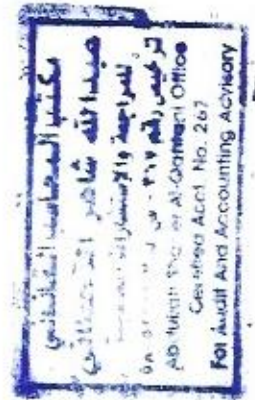 مكتب المحاسب القانوني
عبدالله شاهر القحطاني
للمراجعة والاستشارات
ترخيص رقم ٢٦٧
Al-Qahtani Office
Certified Acct. No. 267
For Audit And Accounting Advisory